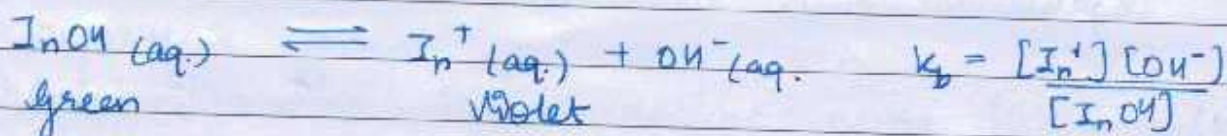 InOH (aq.) ⇌ In⁺ (aq.) + OH⁻ (aq. K_b = [In⁺] [OH⁻] / [InOH]
Green Violet